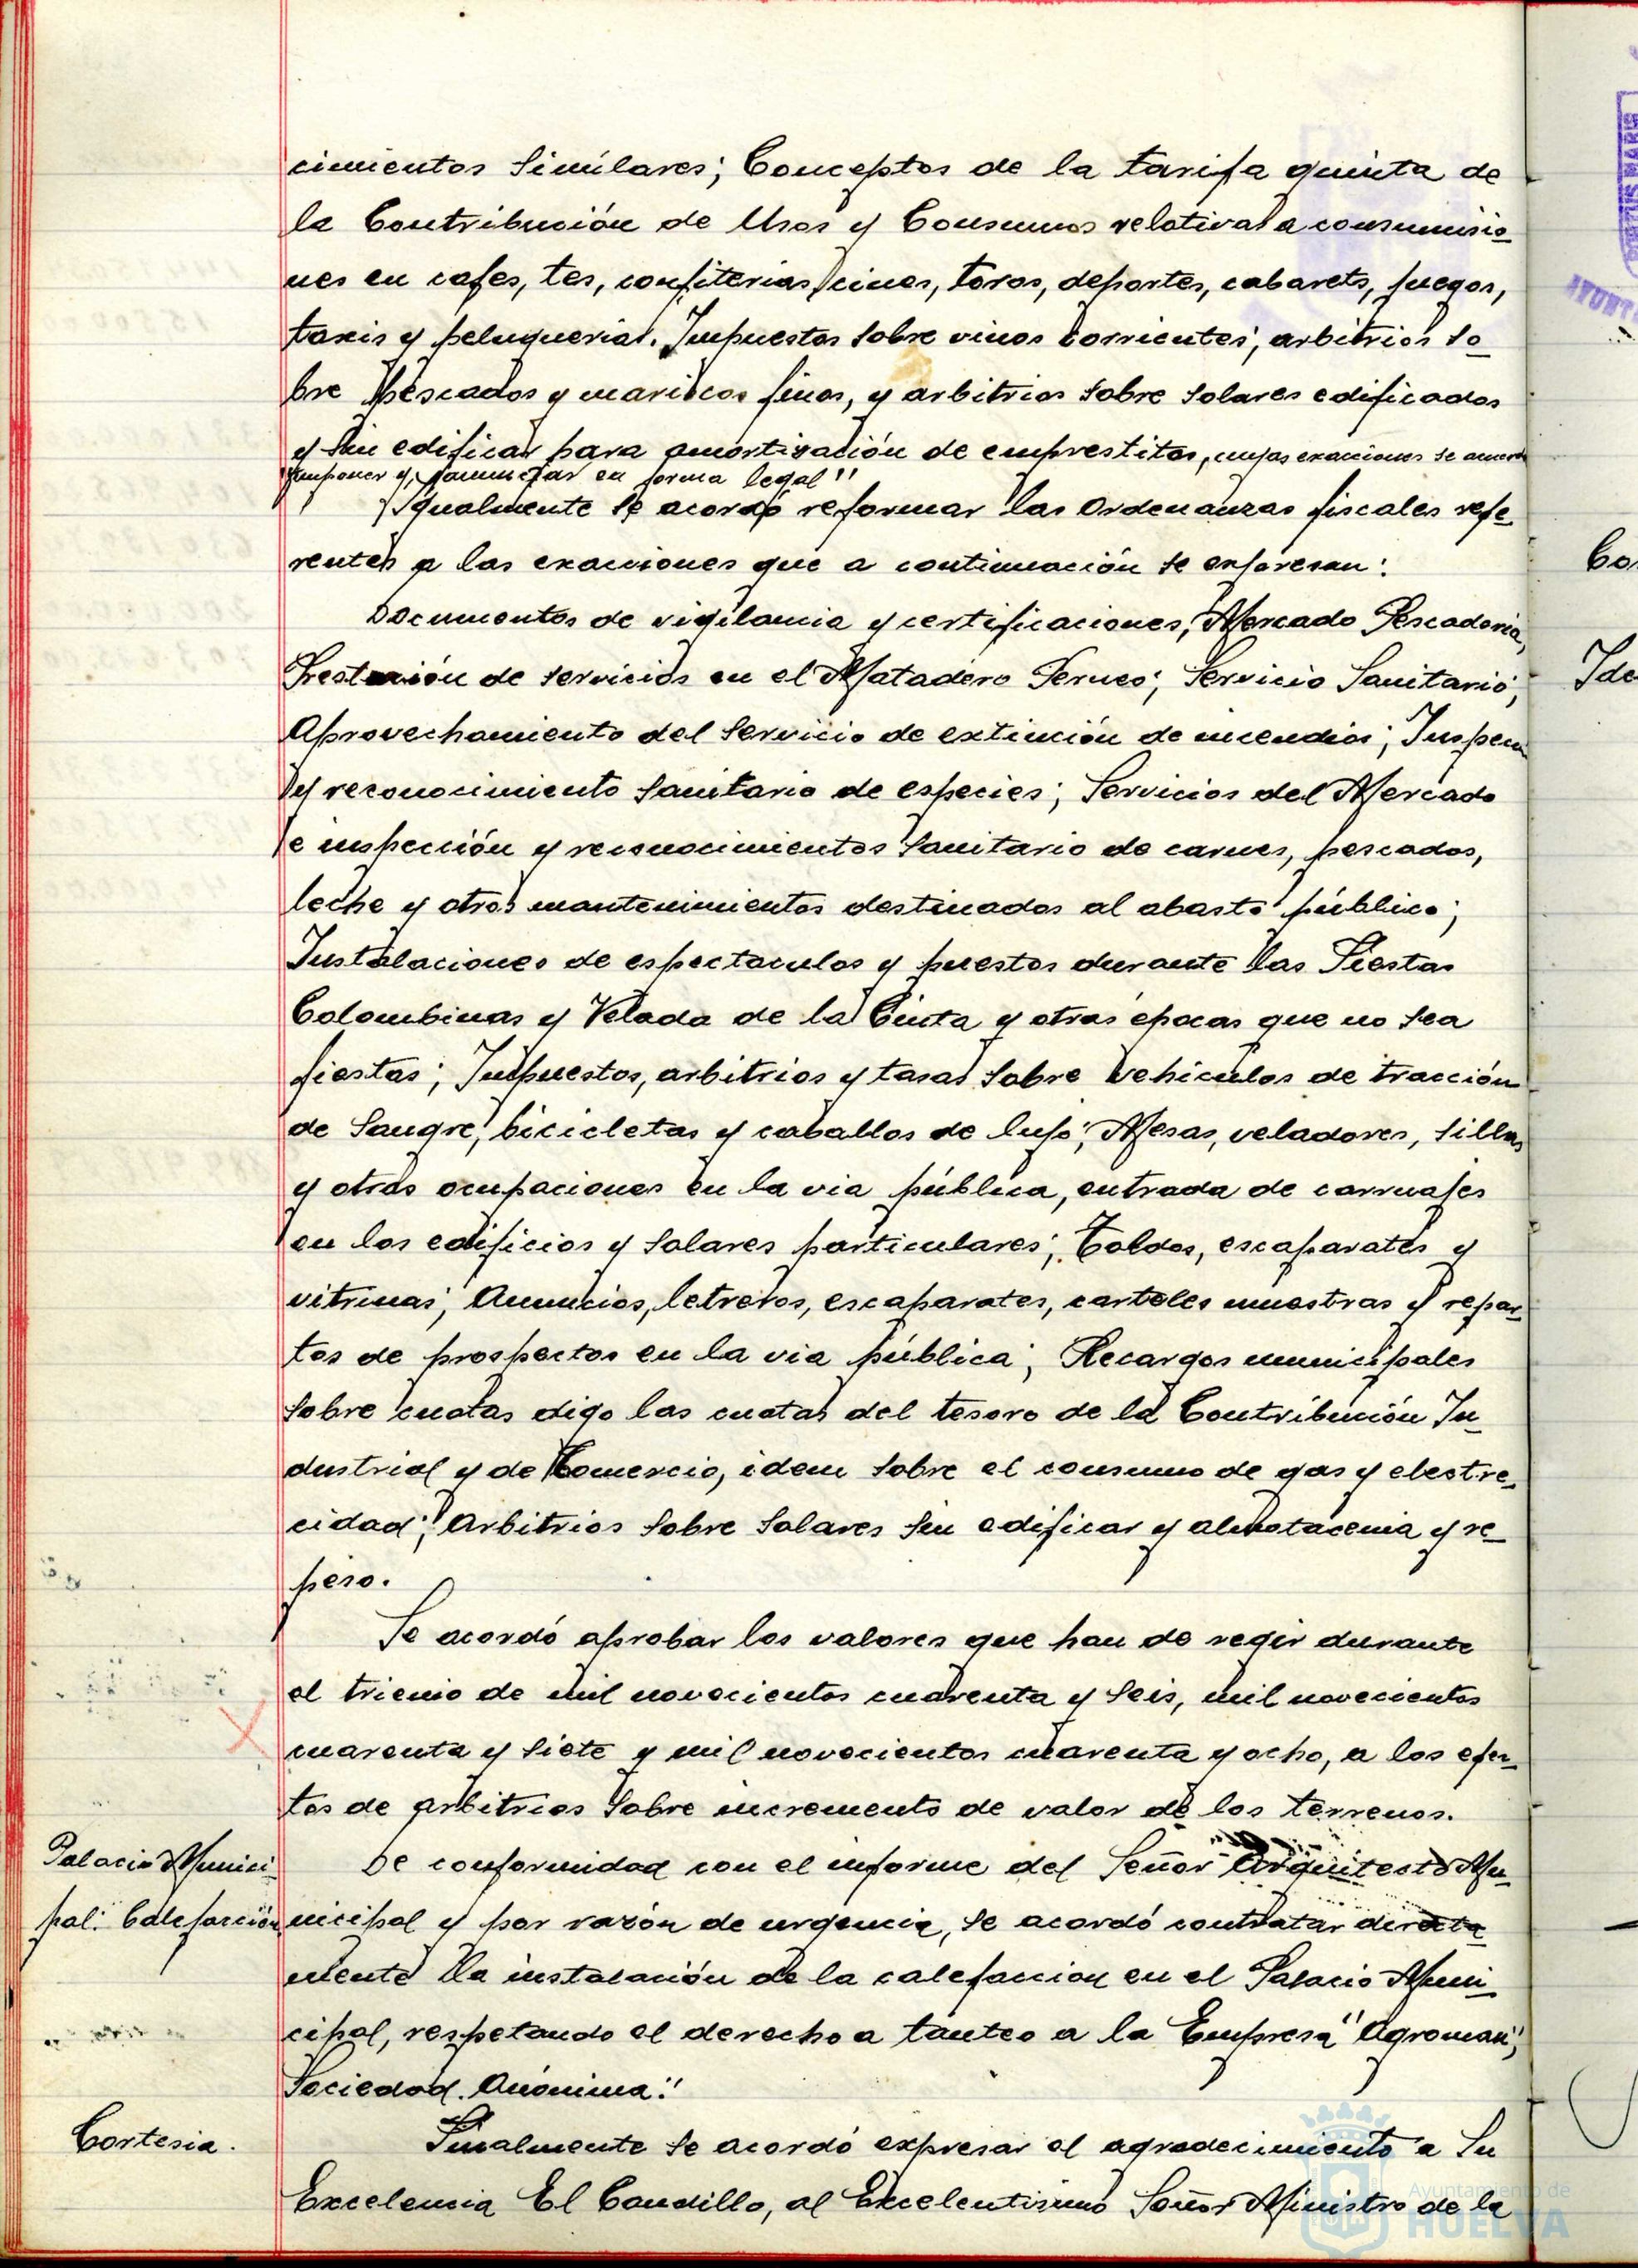 cimientos similares; Conceptos de la tarifa quinta de
la Contribución de Usos y Consumos relativas a consumisio-
nes en cafes, tes, confiterias, cines, toros, deportes, cabarets, juegos,
taxis y peluquerias. Impuestos sobre vinos corrientes; arbitrios so-
bre pescados y mariscos finos, y arbitrios sobre solares edificados
y sin edificar para amortización de emprestitos, cuyas exacciones se acuerda
imponer y tramitar en forma legal"
Igualmente se acordó reformar las Ordenanzas fiscales refe-
rentes a las exacciones que a continuación se expresan:
Documentos de vigilancia y certificaciones; Mercado Pescaderia,
Prestación de servicios en el Matadero Perneo; Servicio Sanitario;
Aprovechamiento del servicio de extinción de incendios; Inspeccn
y reconocimiento sanitario de especies; Servicios del Mercado
e inspección y reconocimientos sanitario de carnes, pescados,
leche y otros mantenimientos destinados al abasto público;
Instalaciones de espectaculos y puestos durante las Fiestas
Colombinas y Velada de la Cinta y otras épocas que no sea
fiestas; Impuestos, arbitrios y tasas sobre vehículos de tracción
de sangre, bicicletas y caballos de lujo; Mesas, veladores, sillas
y otras ocupaciones en la via pública, entrada de carruajes
en los edificios y solares particulares; Toldos, escaparates y
vitrinas; Anuncios, letreros, escaparates, carteles muestras y repar-
tos de prospectos en la via pública; Recargos municipales
sobre cuotas digo las cuotas del tesoro de la Contribución In-
dustrial y de Comercio, idem sobre el consumo de gas y electre-
cidad; Arbitrios sobre solares sin edificar y almotacenia y re-
peso.
Se acordó aprobar los valores que han de regir durante
el trienio de mil novecientos cuarenta y seis, mil novecientos
cuarenta y siete y mil novecientos cuarenta y ocho, a los efec-
tos de arbitrios sobre incremento de valor de los terrenos.
Palacio Munici-
pal: Calefacción
De conformidad con el informe del Señor Arquitecto Mu-
nicipal y por razón de urgencia, se acordó contratar directa
mente la instalación de la calefaccion en el Palacio Muni-
cipal, respetando el derecho a tanteo a la Empresa "Agroman",
Sociedad Anónima."
Cortesia.
Finalmente se acordó expresar el agradecimiento a Su
Excelencia El Caudillo, al Excelentisimo Señor Ministro de la
Ayuntamiento de
HUELVA